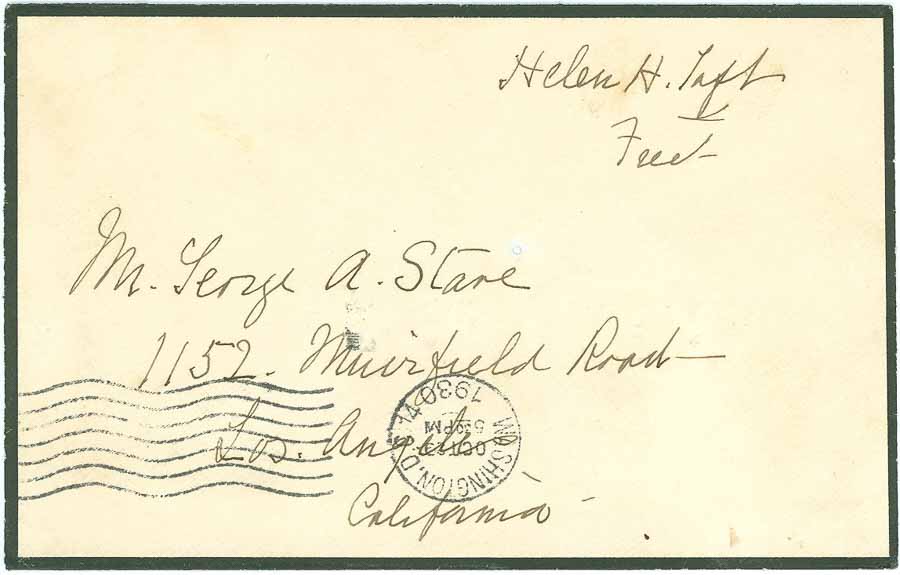 Helen H. Taft
Free
Mr. George A. Stare
1152. Muirfield Road
Los. Angeles
California
WASHINGTON, D.C. 14
OCT
5 PM
1930